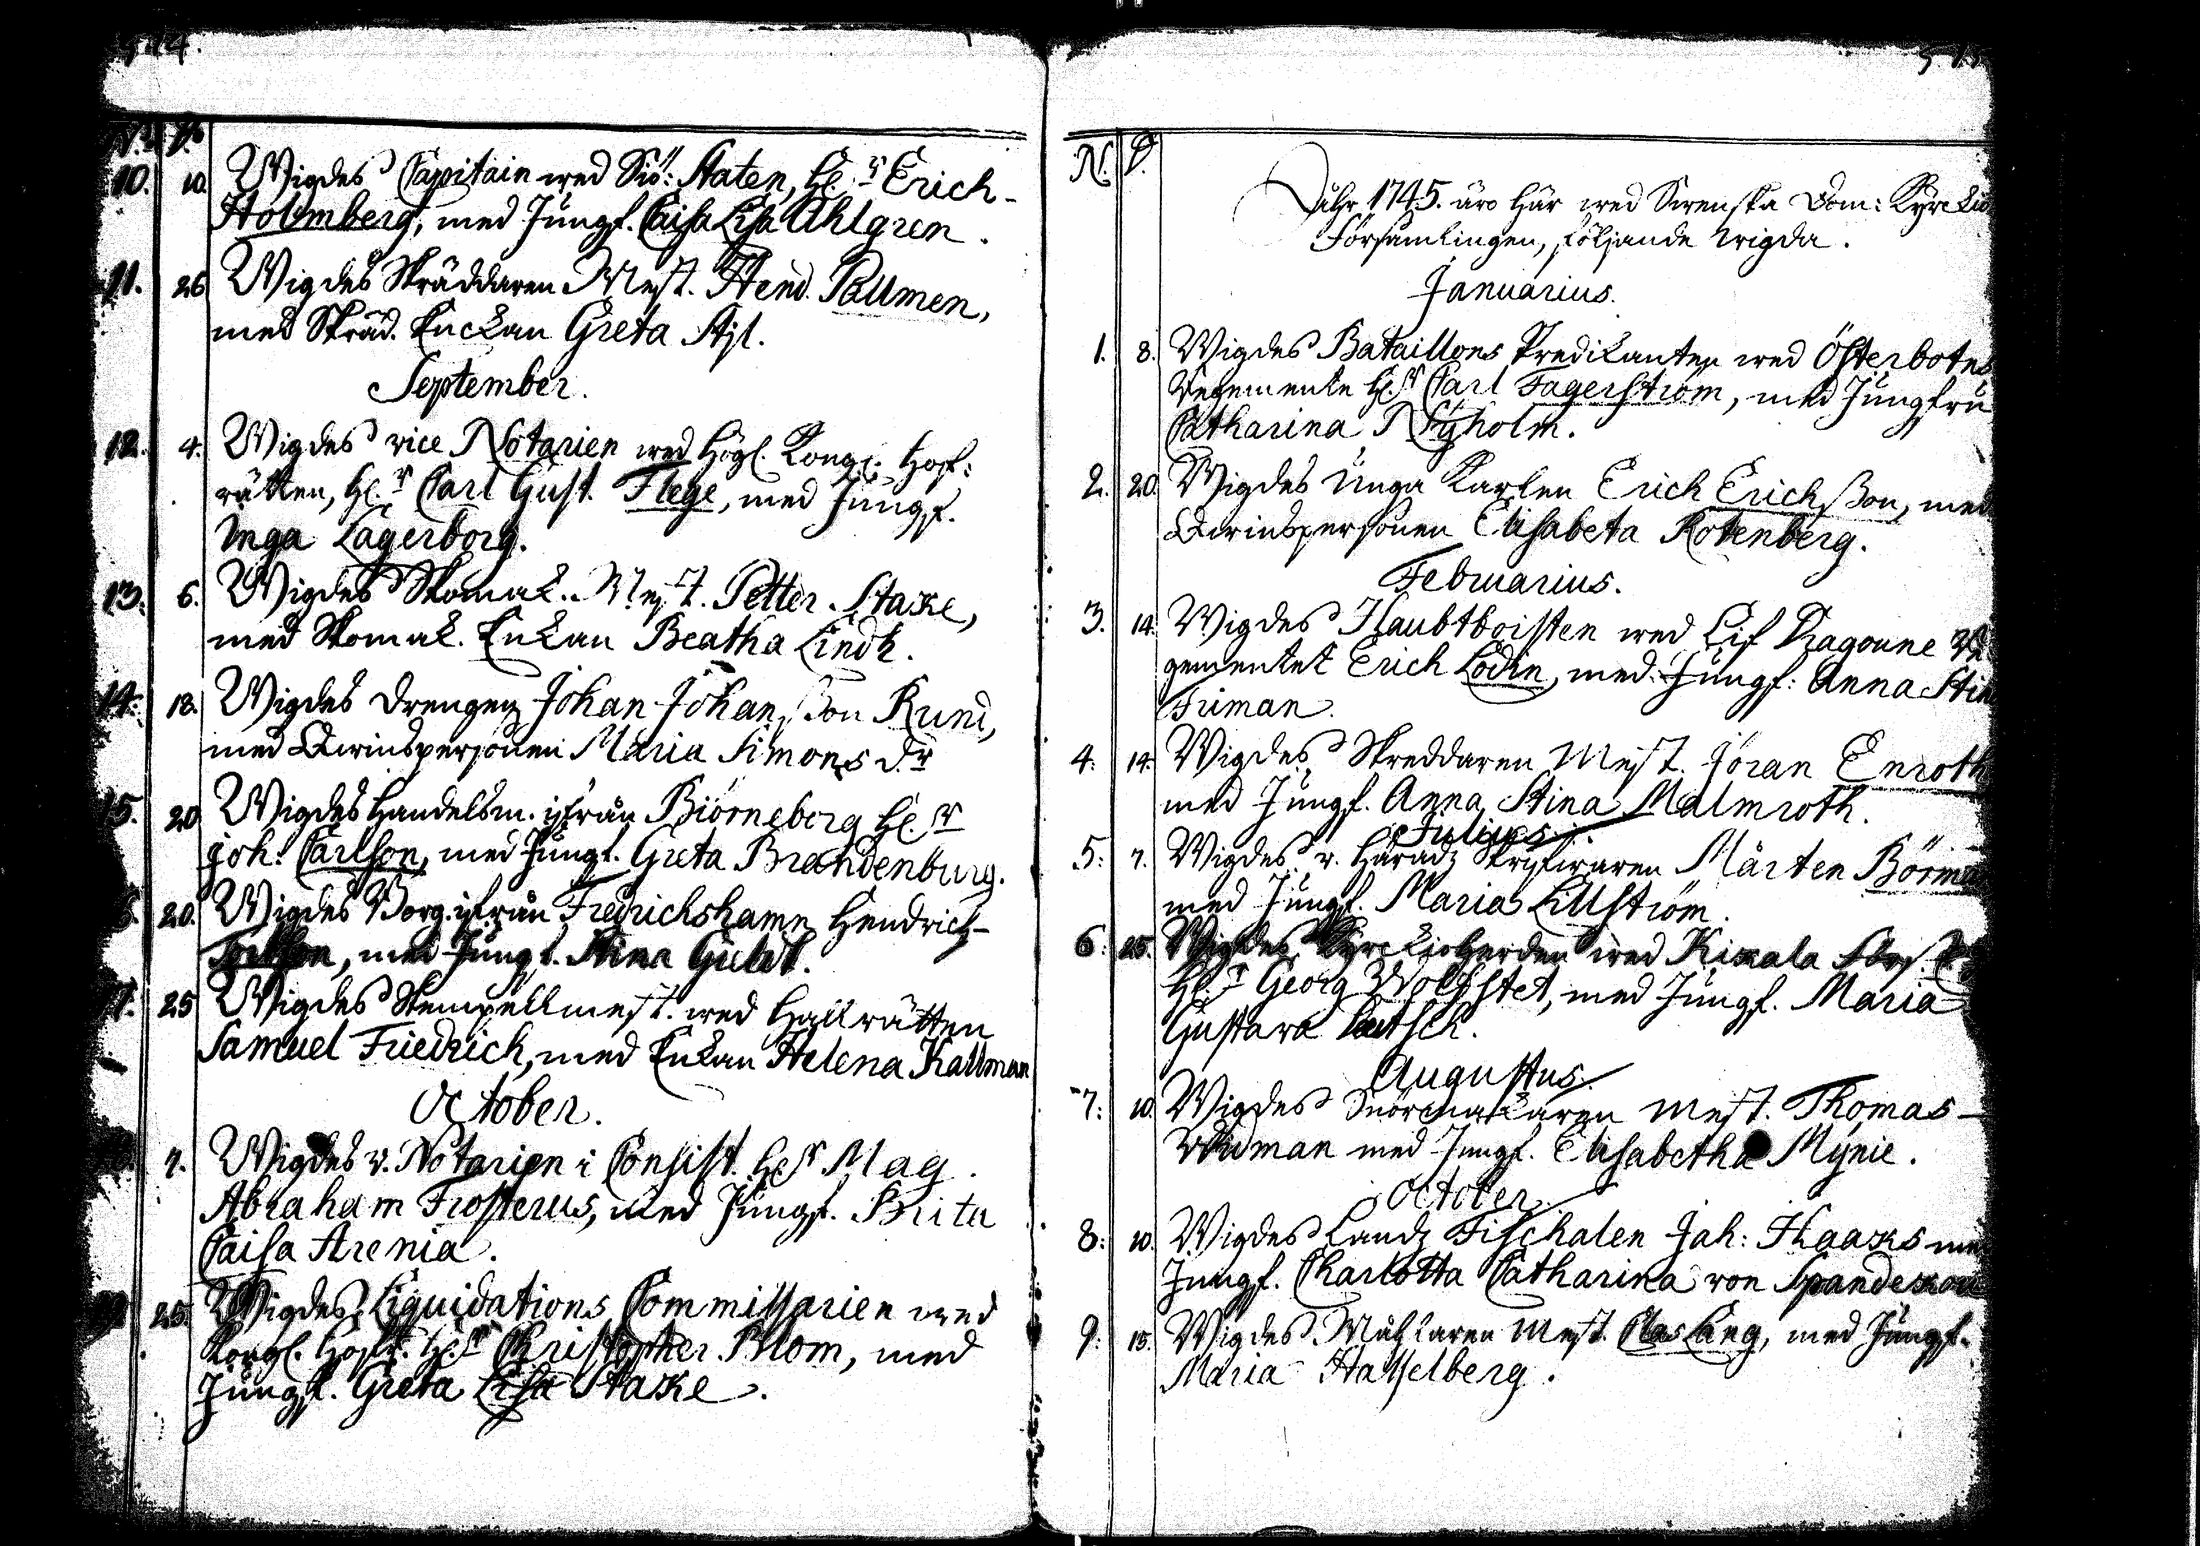 N. D.
10. 10. Wigdes Capitain wed Siö: Staten, H:r Erich
Holmberg, med Jungf. Caisa Lisa Ahlgren.
11. 26 Wigdes Skräddaren Mest. Hend. Pallmen,
med Skräd. Enckan Greta
September.
12. 4. Wigdes vice Notarien wed Högl. Kongl: Hof:
rätten, H:r Carl Gust. Flege, med Jungf.
Inga Lagerborg.
13. 6. Wigdes Skomak. Mest. Petter Stake,
med Skomak. Enkan Beatha Lindh.
14. 18. Wigdes Drengen Johan Johansson Kuni,
med Qwinspersonen Maria Simons dr
15. 20 Wigdes Handelsm. ifrån Biörneborg H:r
Joh: Carlson, med Jungf. Greta Brandenburg.
20. Wigdes Borg. ifrån Fredrichshamn Hendrich
med Jungf. Stina
25 Wigdes Stempellmest. wed Hallrätten
Samuel Friedrich, med Enkan Helena Kallman
October.
7. Wigdes v. Notarien i Consist. H:r Mag.
Abraham Frosterus, med Jungf. Brita
Caisa Arenia.
25. Wigdes Liquidations Commissarien wed
Kongl. Hofr. H:r Christopher Blom, med
Jungf. Greta Lisa Stake.
N. D.
Åhr 1745. äro här wed Swenska Dom: Kyrckio
Församlingen, följande wigda.
Januarius.
1. 8. Wigdes Bataillons Predikanten wed Österbotns
Regemente H:r Carl Fagerström, med Jungfru
Catharina Nyholm.
2. 20. Wigdes Unga Karlen Erich Erichsson, med
Qwinspersonen Elisabeta Rotenberg.
Februarius.
3. 14. Wigdes Haubtboisten wed Lif Dragoune Re
gementet Erich Lodin, med Jungf: Anna Stin
Friman.
4: 14. Wigdes Skreddaren Mest. Jöran Enroth
med Jungf. Anna Stina Malmroth.
Julius.
5: 7. Wigdes v. Häradz Skrifwaren Mårten Börman
med Jungf. Maria Lillström.
6: 25. Wigdes Kyrckioherden wed Kixala
H:r Georg Wolfstet, med Jungf. Maria
Gustava
Augustus.
7: 10. Wigdes Snörmakaren Mest. Thomas
Widman med Jungf. Elisabetha Mynie.
October.
8: 10. Wigdes Landz Fischalen Jah: Haaks med
Jungf. Charlotta Catharina von Spandekow
9: 15. Wigdes Mählaren Mest. Clas Lång, med Jungf.
Maria Hasselberg.